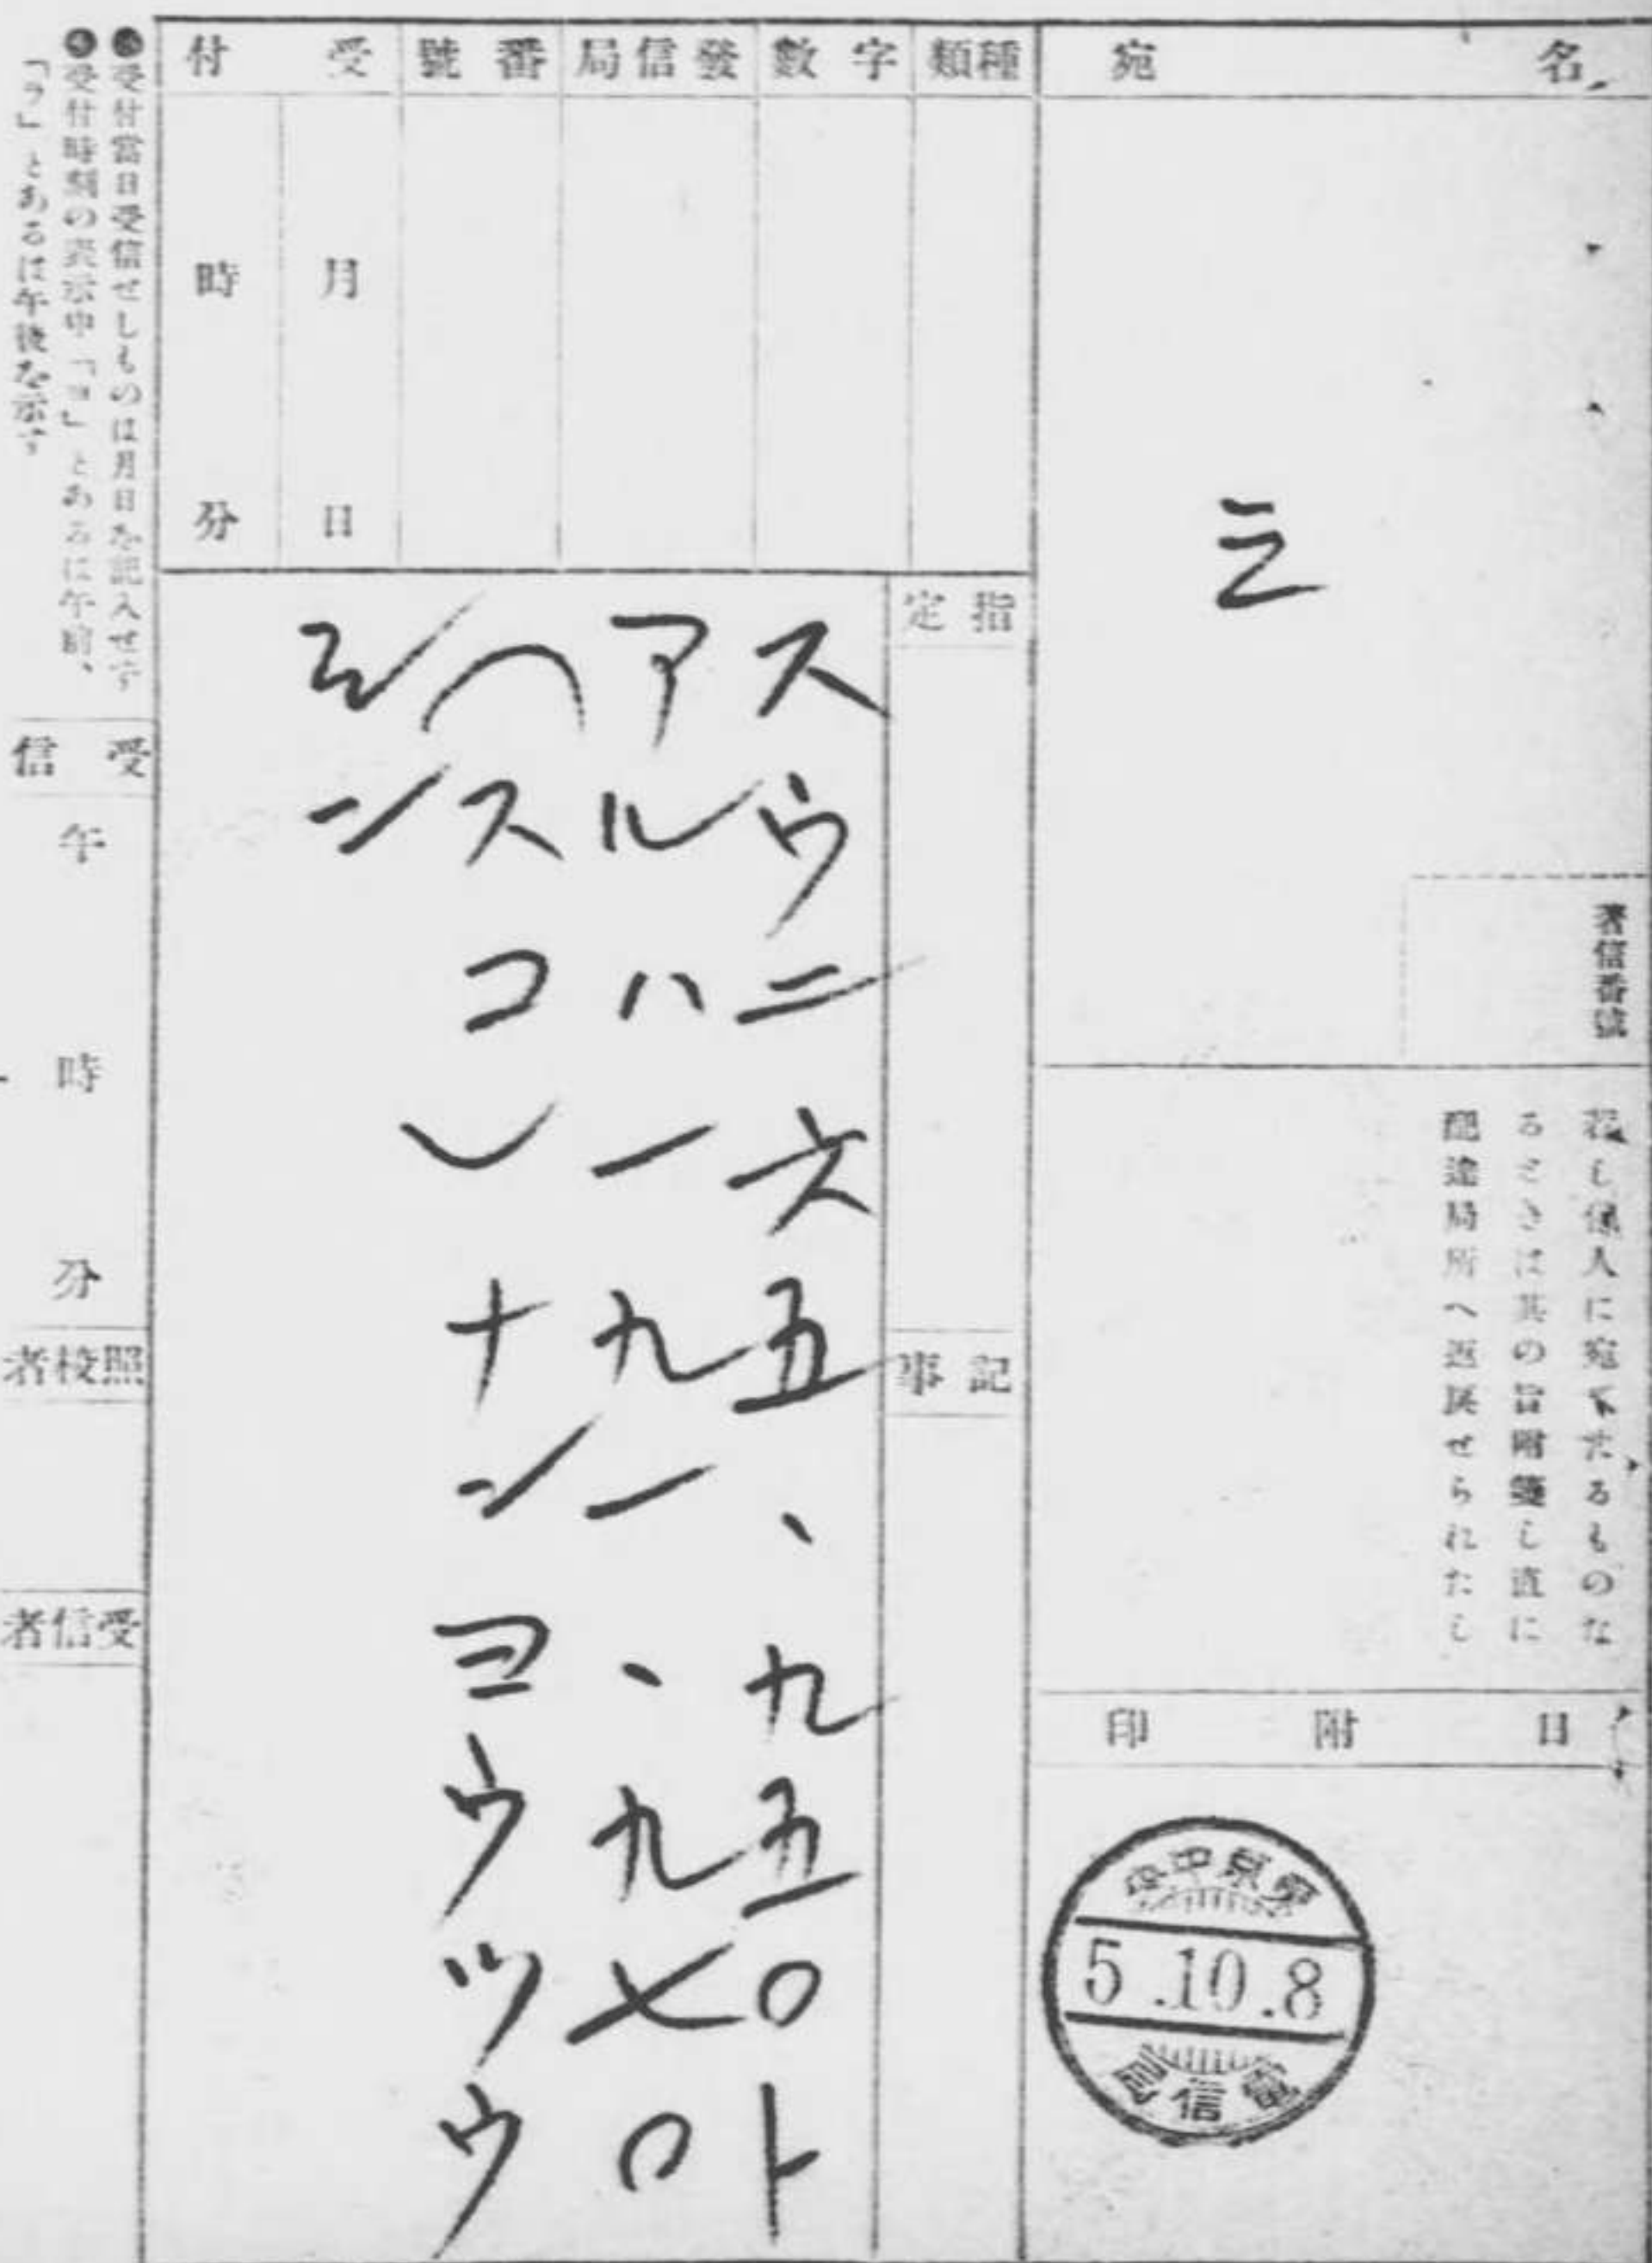 名宛
三
著信番號
若し係人に宛てたるものな
るときは其の旨附箋し直に
配達局所へ返戻せられたし
日附印
東京中央
5.10.8
電信局
種類
字數
發信局
番號
受付
月日
時分
指定
記事
スウニ六五、九五〇ト
アルハ一九一、九七〇
ヘスコシナンヨウツウ
シン
●受付當日受信せしものは月日を記入せす
●受付時刻の表示中「ヨ」とあるは午前、
「ラ」とあるは午後を示す
受信
午時分
照校者
受信者